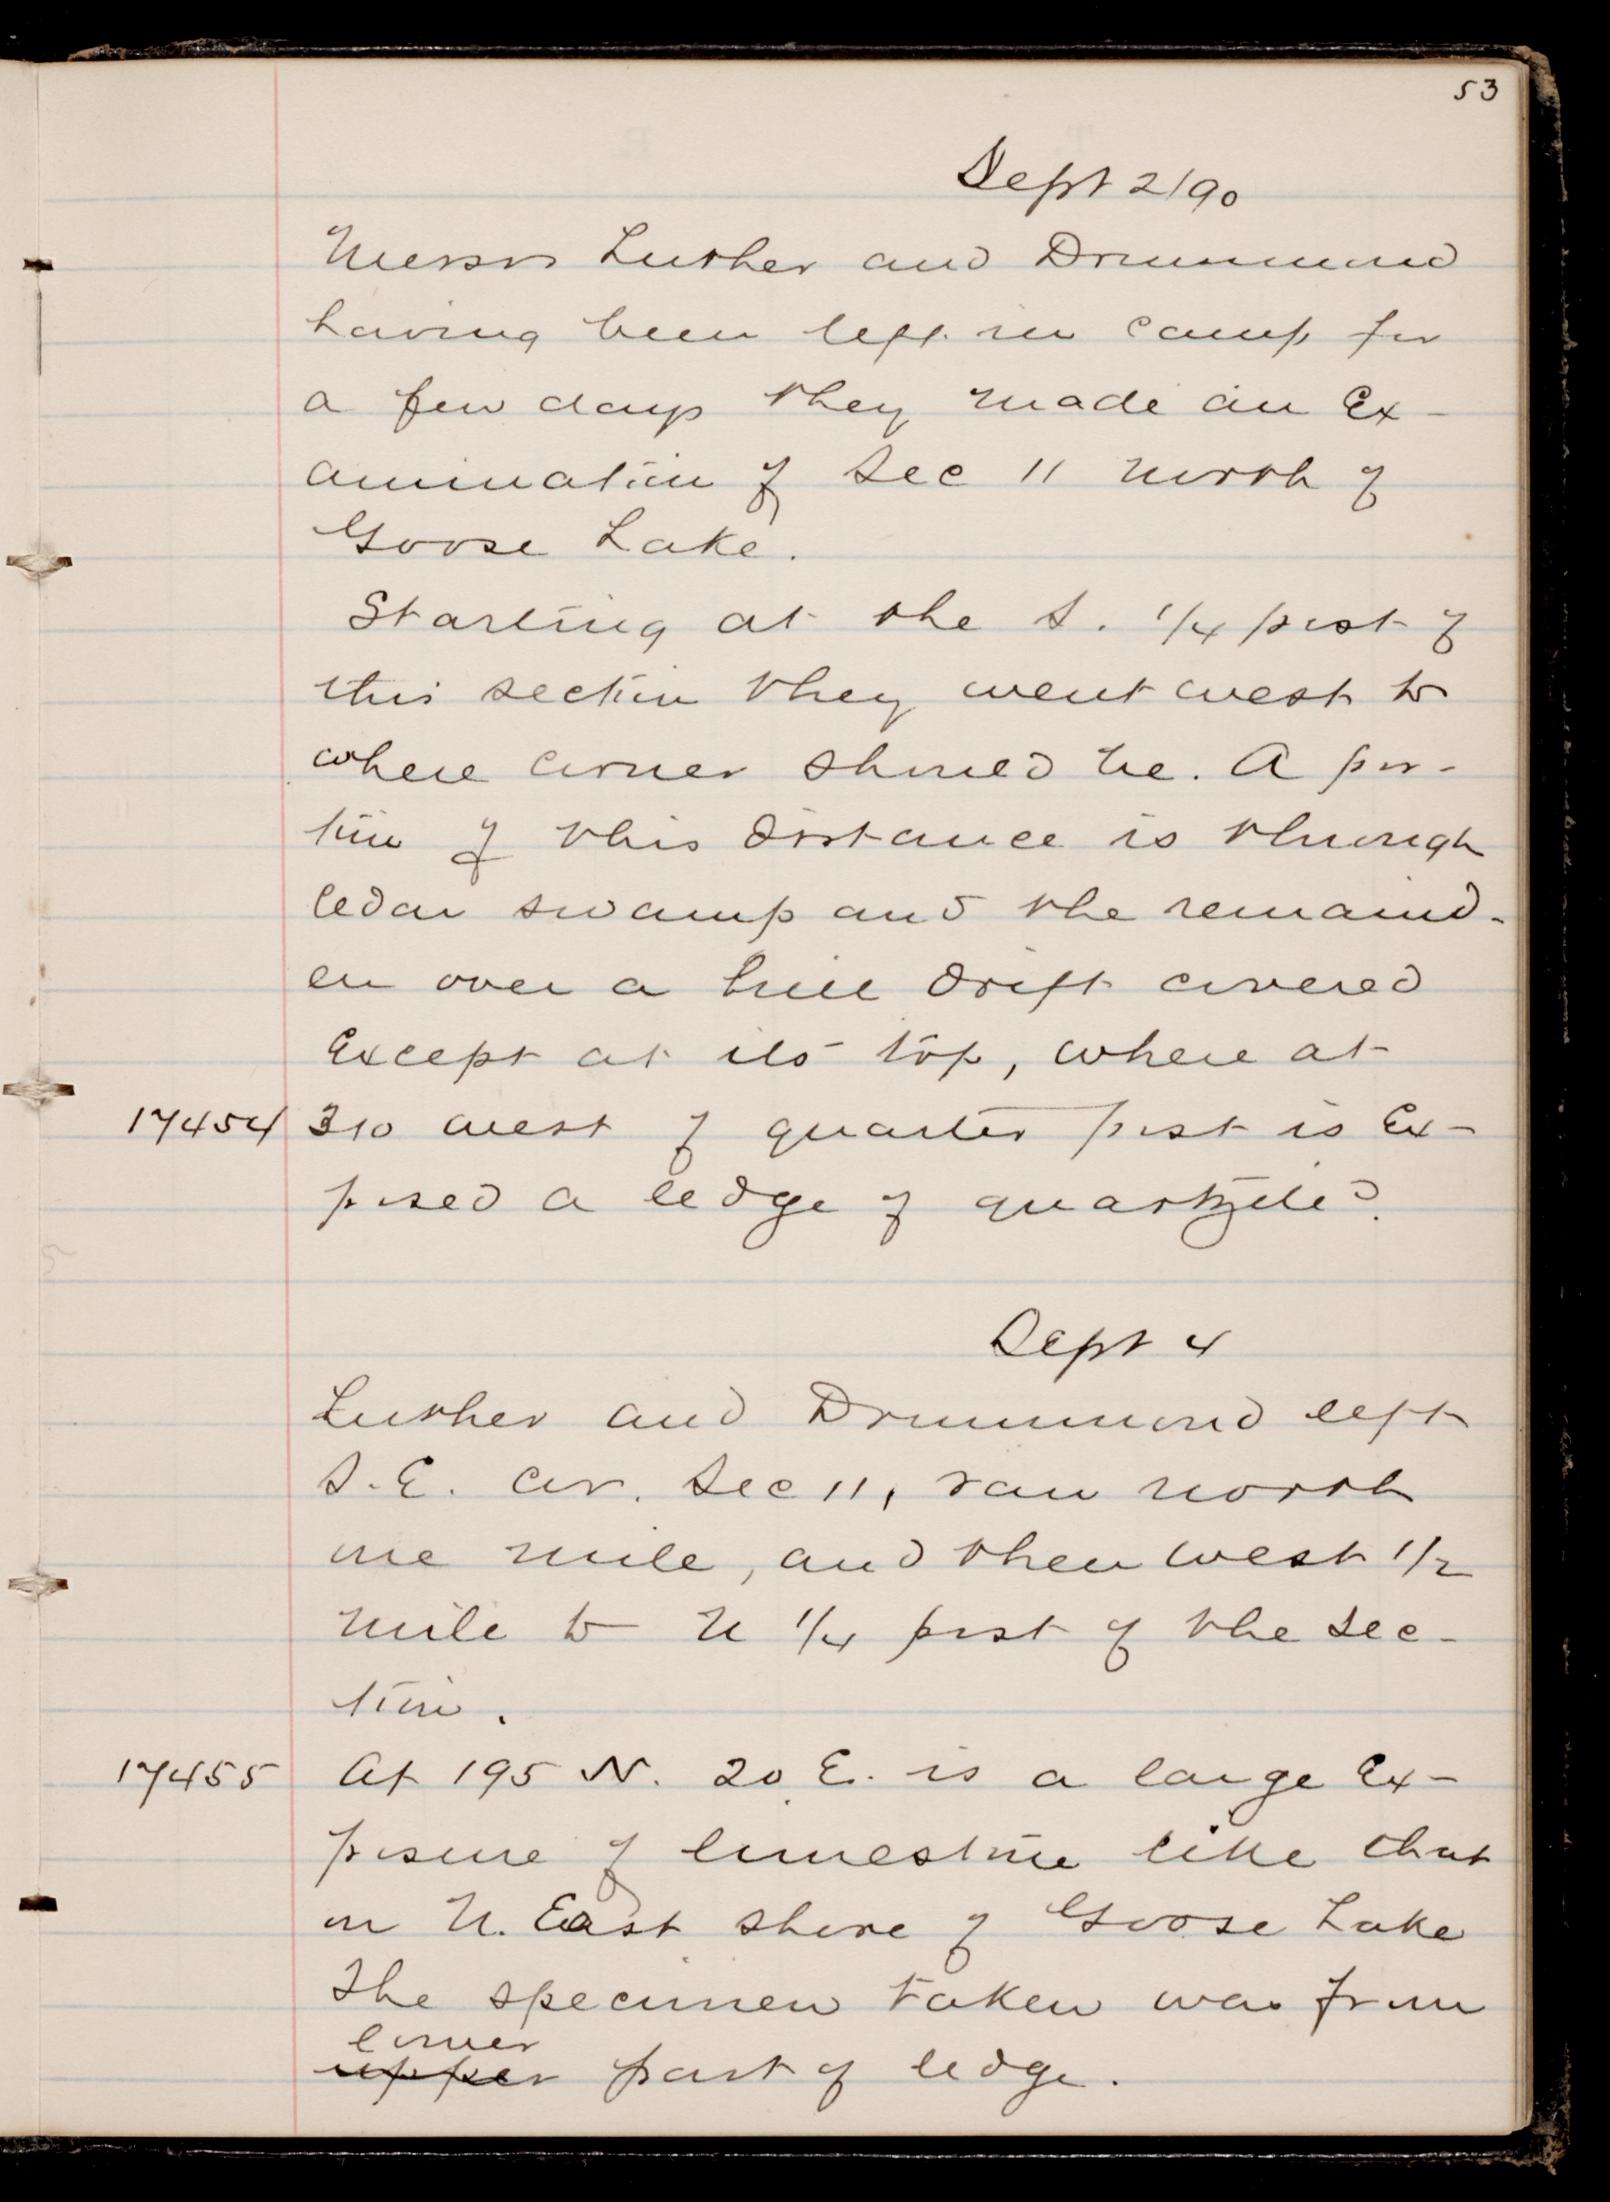 53
Sept 2/90
Messrs Luther and Drummond
having been left in camp for
a few days they made an Ex-
amination of Sec 11 north of
Goose Lake.
Starting at the S. 1/4 post of
this section they went west to
where corner should be. A por-
tion of this distance is through
cedar swamp and the remaind-
er over a hill drift covered
Except at its top, where at
17454 310 west of quarter post is Ex-
posed a ledge of quartzite.
Sept 4
Luther and Drummond left
S.E. cor. Sec 11, ran north
one mile, and then west 1/2
mile to N 1/4 post of the sec-
tion.
17455 At 195 N. 20 E. is a large Ex-
posure of limestone like that
on N. East shore of Goose Lake
The specimen taken was from
lower
upper part of ledge.